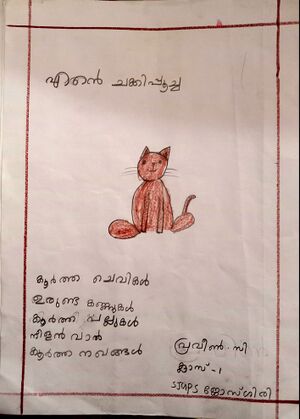 എന്റെ ചക്കിപ്പൂച്ച
കൂർത്ത ചെവികൾ
ഉരുണ്ട കണ്ണുകൾ
കൂർത്ത പല്ലുകൾ
നീളൻ വാൽ
കൂർത്ത നഖങ്ങൾ
പ്രവീൺ. സി
ക്ലാസ് - 1
SJUPS ജോസ്ഗിരി